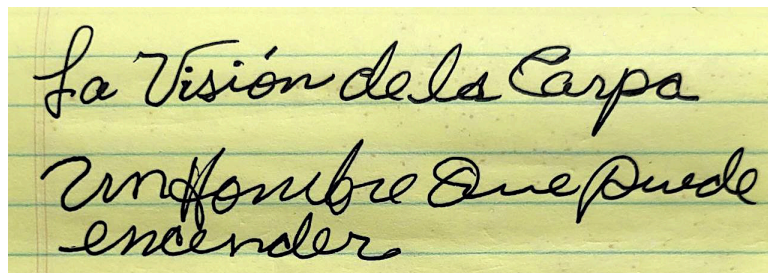 La Visión de la Carpa
Un Hombre Que puede
encender